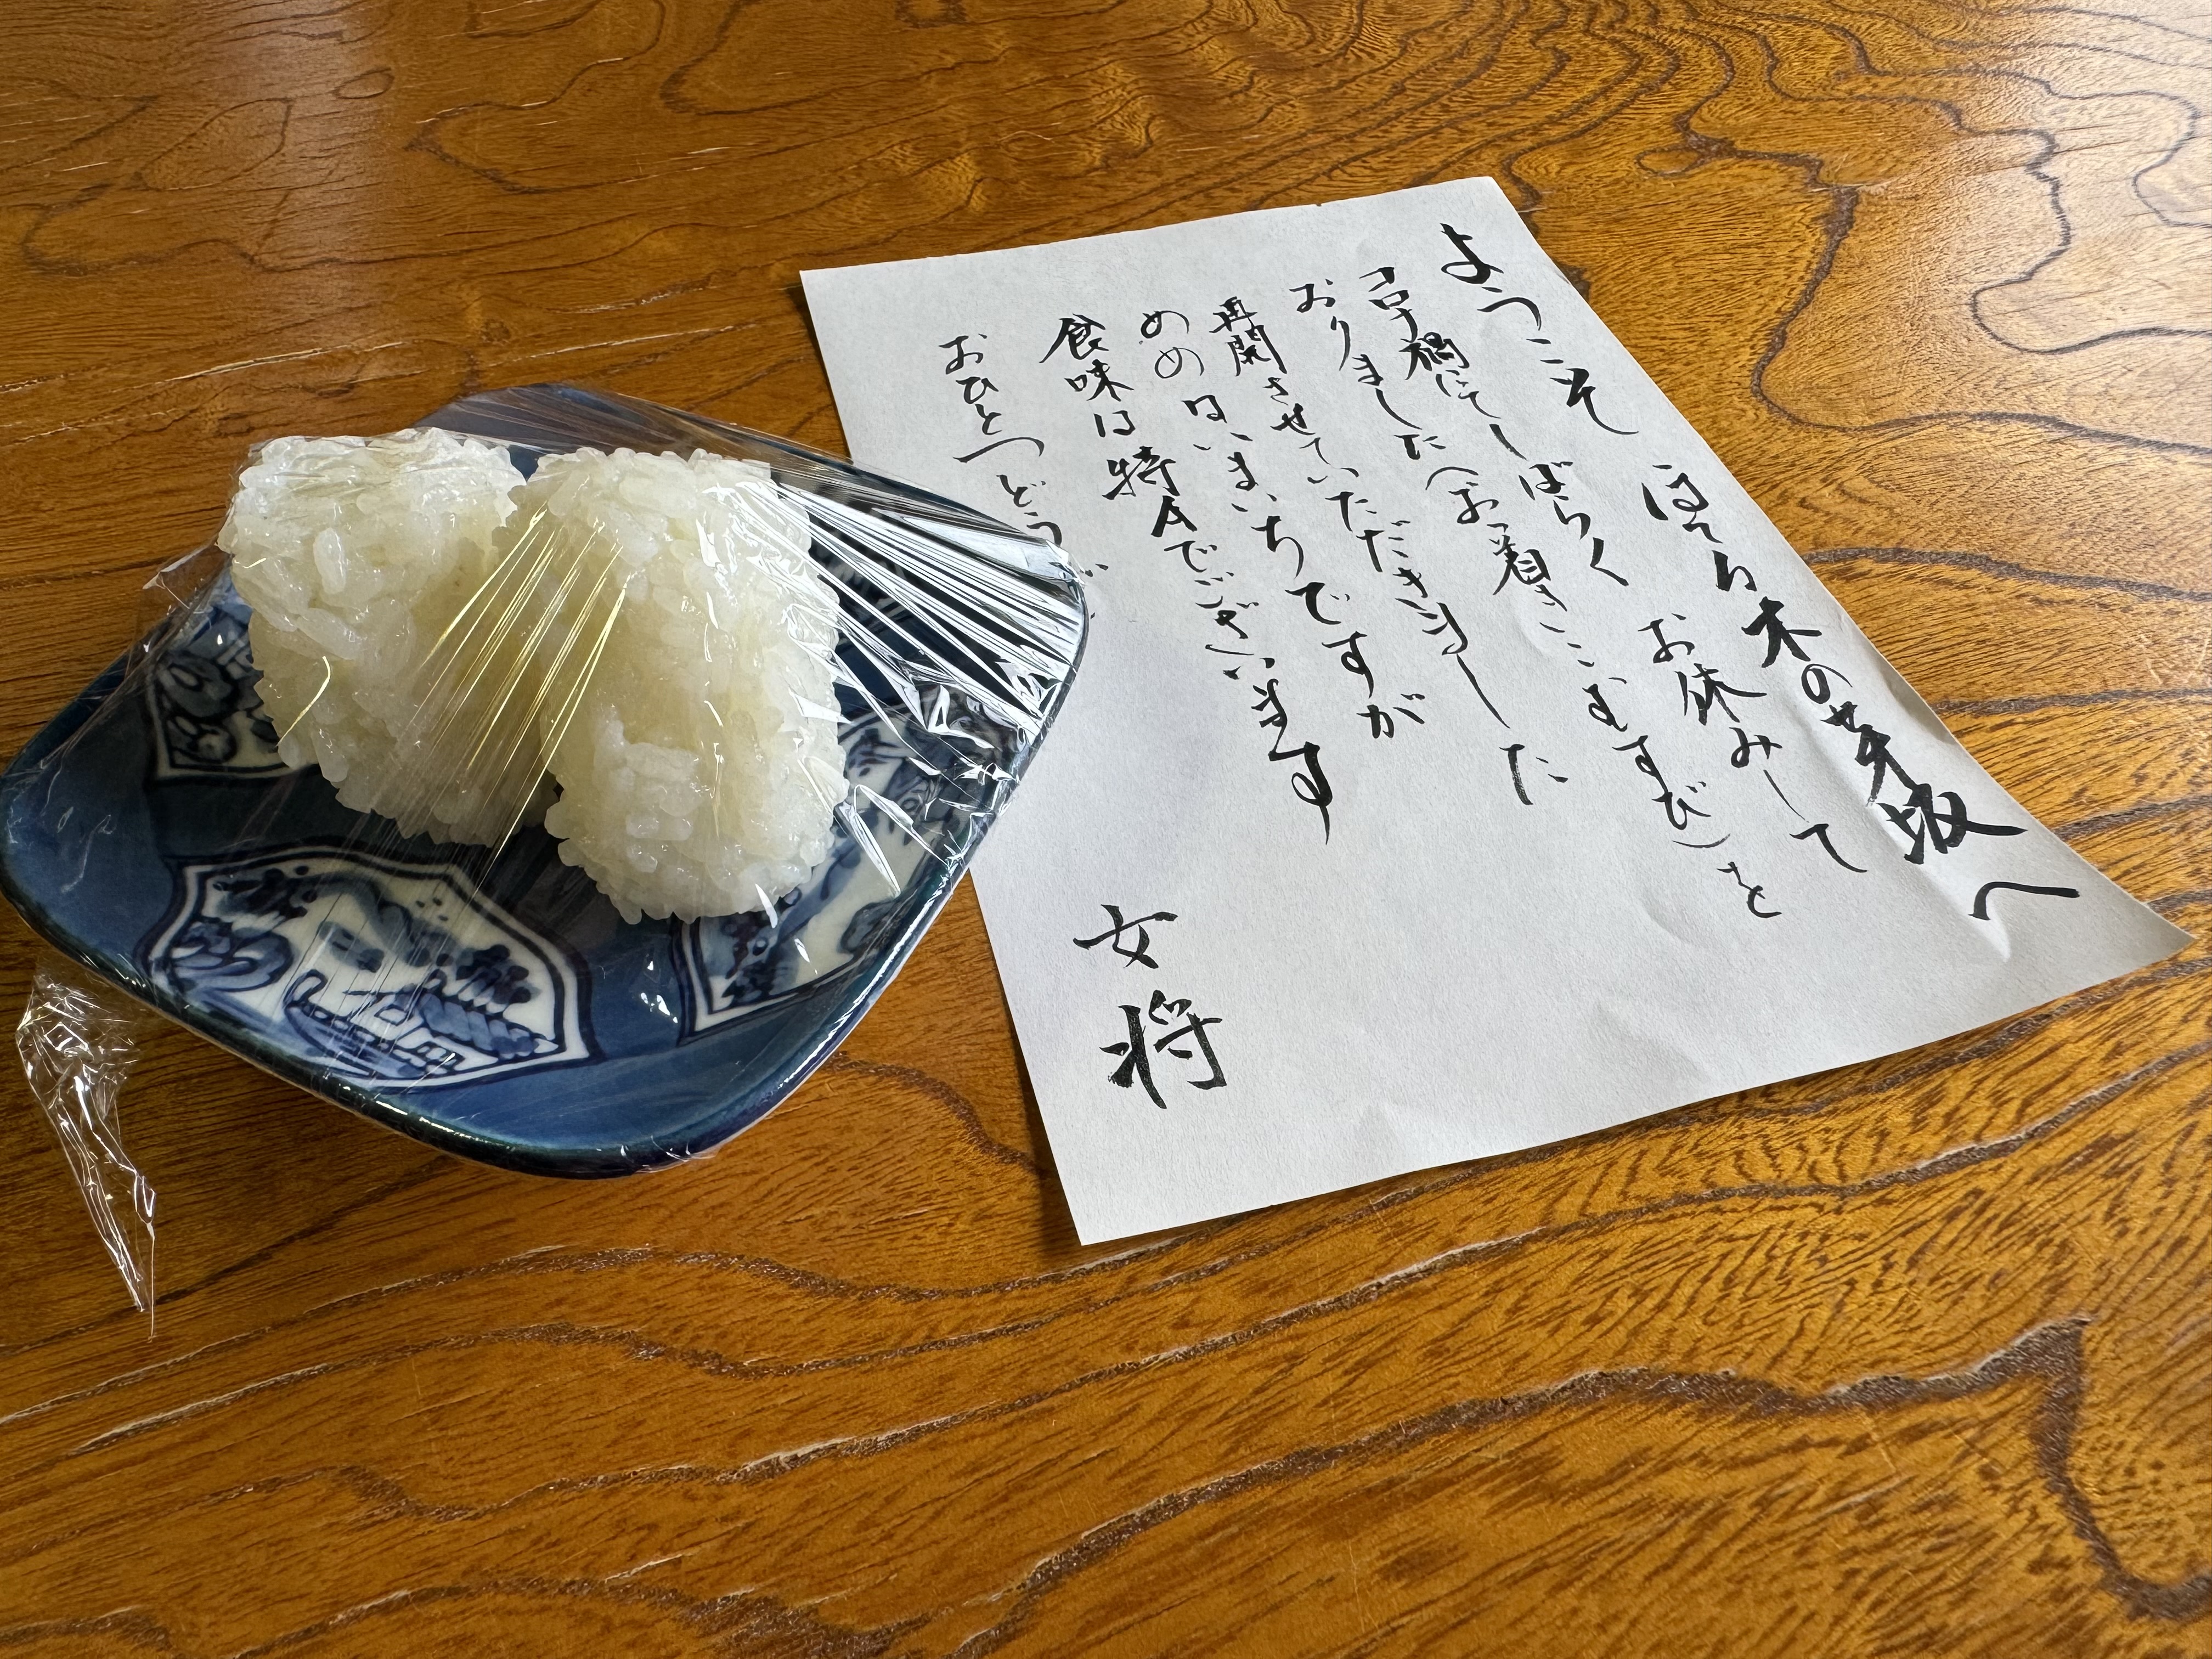 ようこそ ほてる木の芽坂へ
コロナ禍にてしばらくお休みして
おりました(お着きこむすび)を
再開させていただきました
めめはいまいちですが
食味は特Aでございます
おひとつどうぞ
女将